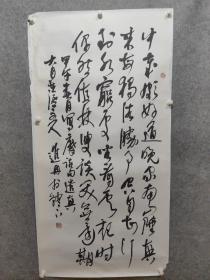 中歲頗好道晚家南山陲興
來每獨往勝事空自知行
到水窮處坐看雲起時
偶然值林叟談笑無還期
甲午春月寫摩詰句遣興